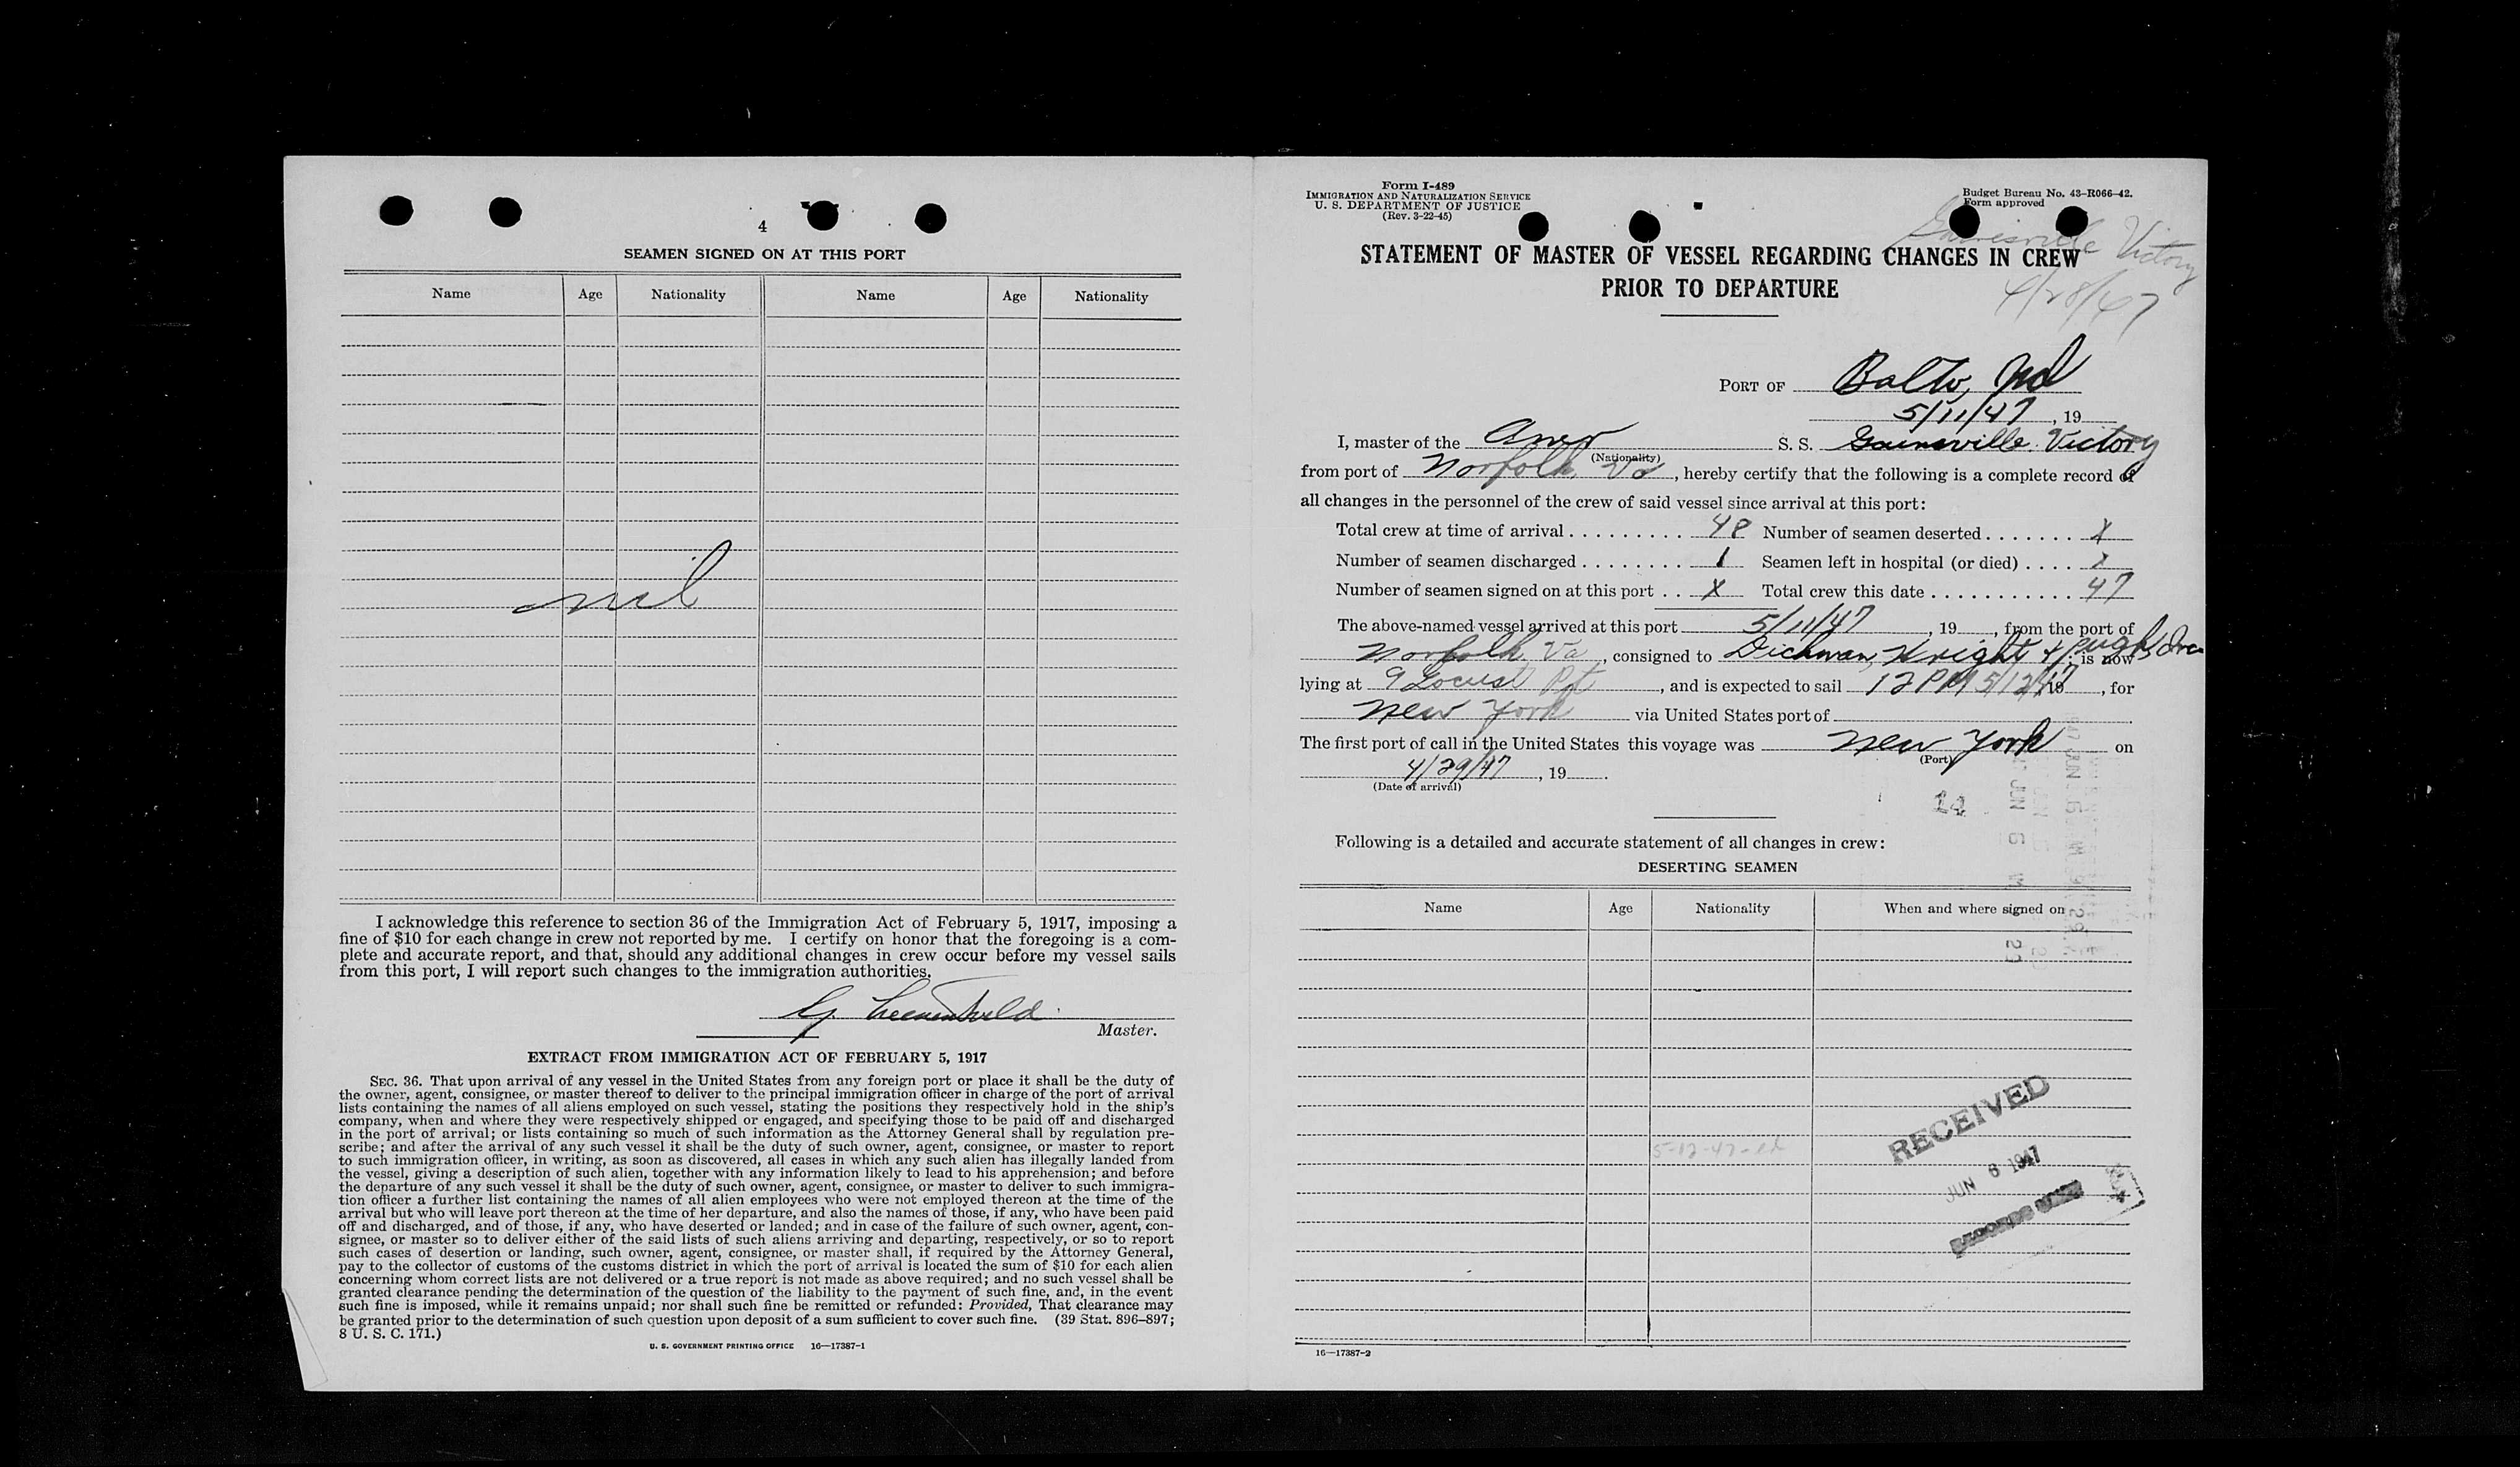 4
SEAMEN SIGNED ON AT THIS PORT
Name Age Nationality Name Age Nationality
nil
I acknowledge this reference to section 36 of the Immigration Act of February 5, 1917, imposing a
fine of $10 for each change in crew not reported by me. I certify on honor that the foregoing is a com-
plete and accurate report, and that, should any additional changes in crew occur before my vessel sails
from this port, I will report such changes to the immigration authorities.
G.
Master.
EXTRACT FROM IMMIGRATION ACT OF FEBRUARY 5, 1917
SEC. 36. That upon arrival of any vessel in the United States from any foreign port or place it shall be the duty of
the owner, agent, consignee, or master thereof to deliver to the principal immigration officer in charge of the port of arrival
lists containing the names of all aliens employed on such vessel, stating the positions they respectively hold in the ship's
company, when and where they were respectively shipped or engaged, and specifying those to be paid off and discharged
in the port of arrival; or lists containing so much of such information as the Attorney General shall by regulation pre-
scribe; and after the arrival of any such vessel it shall be the duty of such owner, agent, consignee, or master to report
to such immigration officer, in writing, as soon as discovered, all cases in which any such alien has illegally landed from
the vessel, giving a description of such alien, together with any information likely to lead to his apprehension; and before
the departure of any such vessel it shall be the duty of such owner, agent, consignee, or master to deliver to such immigra-
tion officer a further list containing the names of all alien employees who were not employed thereon at the time of the
arrival but who will leave port thereon at the time of her departure, and also the names of those, if any, who have been paid
off and discharged, and of those, if any, who have deserted or landed; and in case of the failure of such owner, agent, con-
signee, or master so to deliver either of the said lists of such aliens arriving and departing, respectively, or so to report
such cases of desertion or landing, such owner, agent, consignee, or master shall, if required by the Attorney General,
pay to the collector of customs of the customs district in which the port of arrival is located the sum of $10 for each alien
concerning whom correct lists are not delivered or a true report is not made as above required; and no such vessel shall be
granted clearance pending the determination of the question of the liability to the payment of such fine, and, in the event
such fine is imposed, while it remains unpaid; nor shall such fine be remitted or refunded: Provided, That clearance may
be granted prior to the determination of such question upon deposit of a sum sufficient to cover such fine. (39 Stat. 896–897;
8 U. S. C. 171.)
U. S. GOVERNMENT PRINTING OFFICE 16—17387-1
Form I-489
IMMIGRATION AND NATURALIZATION SERVICE
U. S. DEPARTMENT OF JUSTICE
(Rev. 3-22-45)
Budget Bureau No. 43-R066-42.
Form approved
Gainesville Victory
4/28/47
STATEMENT OF MASTER OF VESSEL REGARDING CHANGES IN CREW
PRIOR TO DEPARTURE
PORT OF Balto, Md
5/11/47, 19
I, master of the Amer S. S. Gainsville Victory
(Nationality)
from port of Norfolk, Va, hereby certify that the following is a complete record of
all changes in the personnel of the crew of said vessel since arrival at this port:
Total crew at time of arrival 48 Number of seamen deserted X
Number of seamen discharged 1 Seamen left in hospital (or died) X
Number of seamen signed on at this port X Total crew this date 47
The above-named vessel arrived at this port 5/11/47, 19, from the port of
Norfolk Va, consigned to Dichman, Wright & Pugh, Inc; is now
lying at 9 Locust Pt, and is expected to sail 12 PM 5/12/47 19, for
New York via United States port of
The first port of call in the United States this voyage was New York on
(Port)
4/29/47, 19.
(Date of arrival)
14
Following is a detailed and accurate statement of all changes in crew:
DESERTING SEAMEN
Name Age Nationality When and where signed on
5-12-47-ed
RECEIVED
JUN 6 1947
16—17387-2